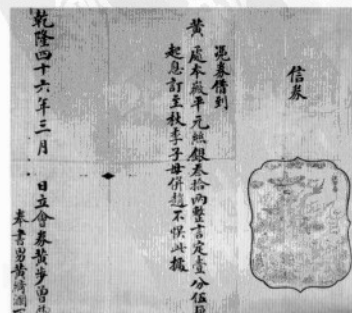 信券
凭券借到
黄處本嚴平元絲銀叁拾兩整言定壹分伍
起息訂至秋季子母併趙不悮此據
乾隆四十六年三月 日立會券黄步曾
奉書男黄綺瀾